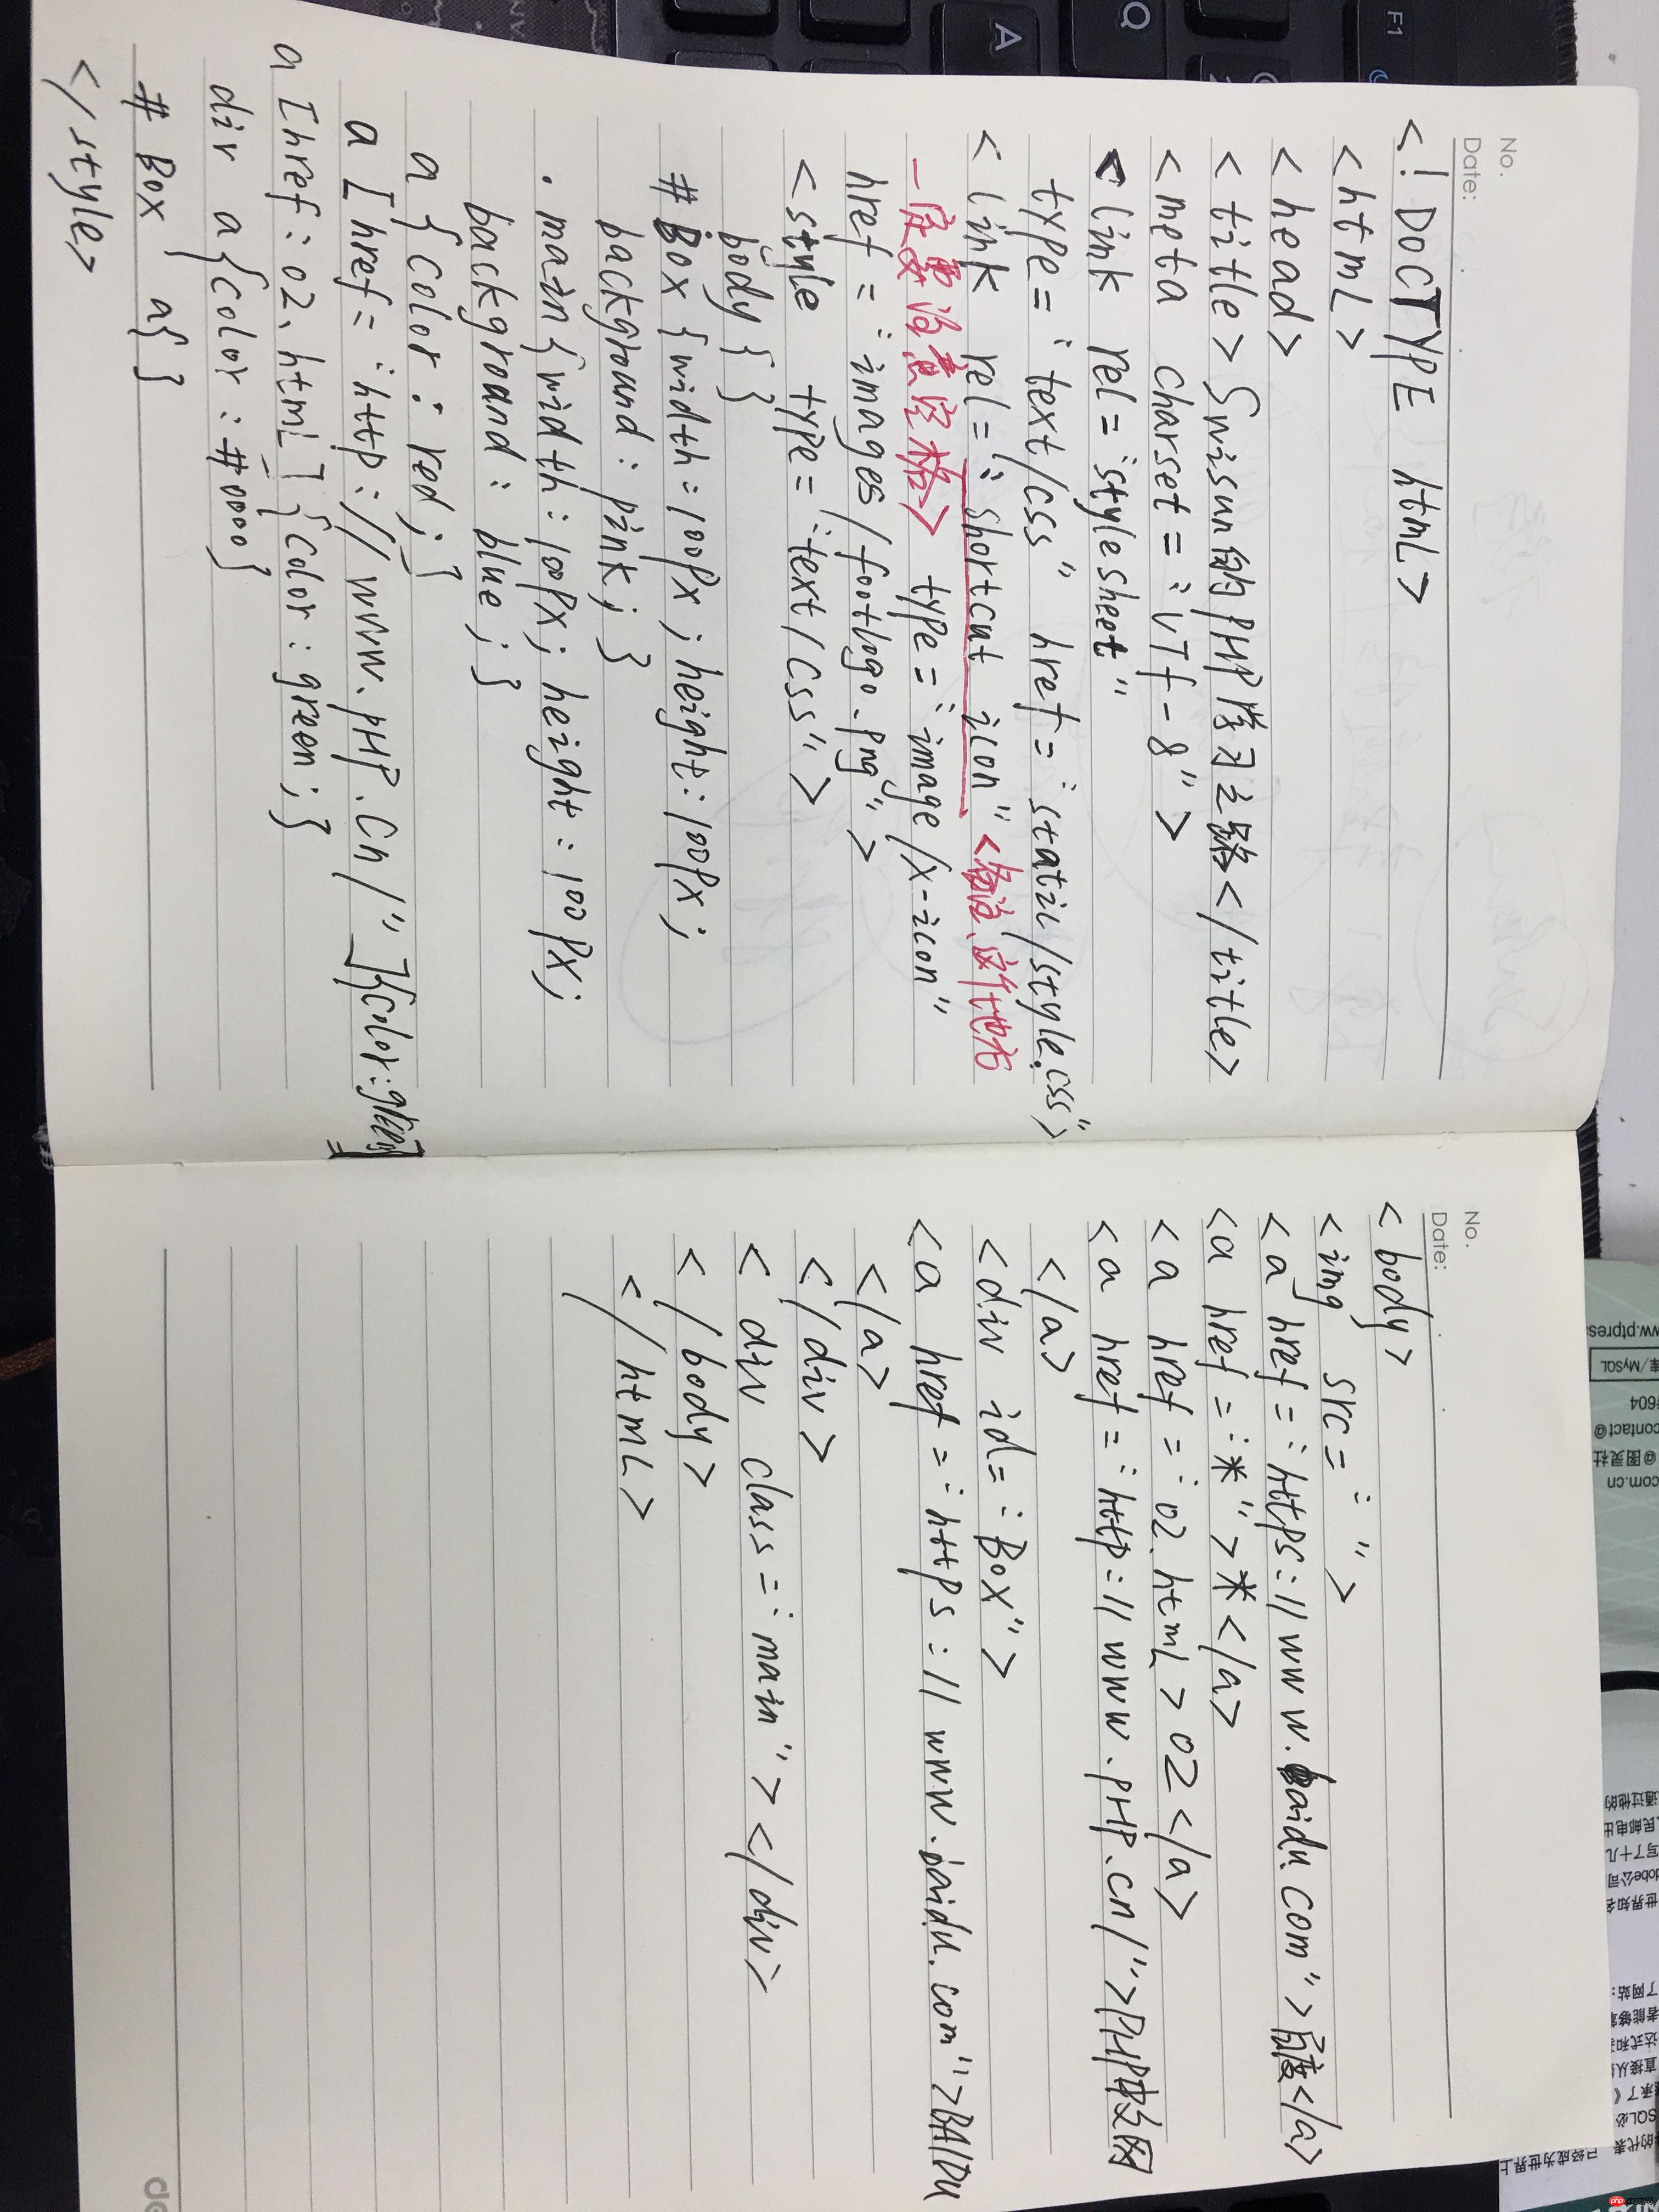 No.
Date:
<!DOCTYPE html>
<html>
<head>
<title>Swisun的PHP学习之路</title>
<meta charset="UTf-8">
<link rel="stylesheet"
type="text/css" href="static/style.css">
<link rel="shortcut icon" <备注、这个地方
一定要注意空格> type="image/x-icon"
href="images/footlogo.png">
<style type="text/css">
body{ }
#Box{width=100px;height:100px;
background:pink;}
.main{width:100px;height:100px;
background:blue;}
a{color:red;}
a[href="http://www.pHp.Cn/"]{color:green}
a[href:02.html]{color:green;}
div a{color:#0000}
#Box a{}
</style>
No.
Date:
<body>
<img src="">
<a href="https://www.baidu.com">百度</a>
<a href="*">*</a>
<a href="02.html>02</a>
<a href="http://www.pHp.cn/">PHP中文网
</a>
<div id="Box">
<a href="https://www.baidu.com">BAIDU
</a>
</div>
<div class="main"></div>
</body>
</html>
F1
Q
A
库/MySQL
604
contact@
@图灵社
com.cn
php